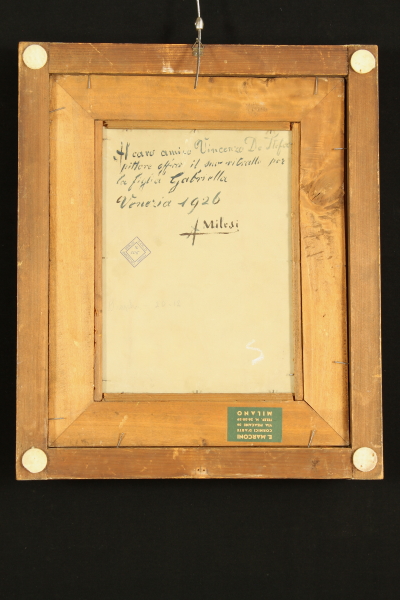 Al caro amico Vincenzo De
pittore offro il suo ritratto per
la figlia Gabriella
Venezia 1926
A Milesi
E. MARCONI
CORNICI D'ARTE
MILANO